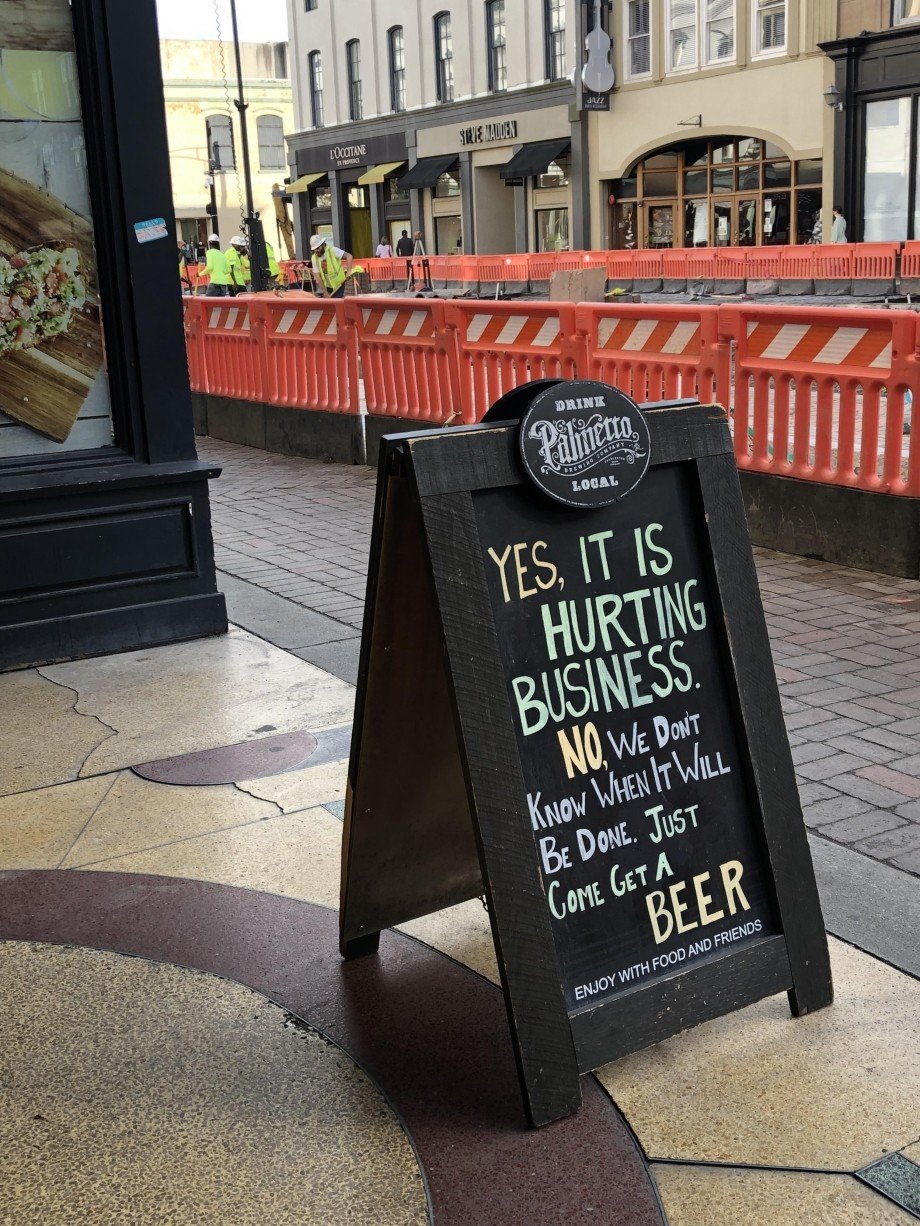 L'OCCITANE
EN PROVENCE
STEVE MADDEN
JAZZ
DRINK
Palmetto
BREWING COMPANY
LOCAL
YES, IT IS
HURTING
BUSINESS.
NO, WE DON'T
KNOW WHEN IT WILL
BE DONE. JUST
COME GET A
BEER
ENJOY WITH FOOD AND FRIENDS